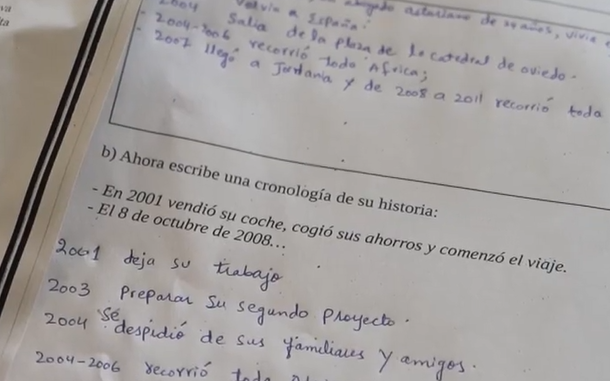 va
ta
abogado asturiano de 24 años, vivía
2004 volvía a España:
- 2004-2006 Salia de la plaza de la catedral de oviedo.
recorrió todo Africa;
- 2007 llegó a Jordania y de 2008 a 2011 recorrió toda
b) Ahora escribe una cronología de su historia:
- En 2001 vendió su coche, cogió sus ahorros y comenzó el viaje.
- El 8 de octubre de 2008...
2001 deja su trabajo
2003 preparar su segundo proyecto.
2004 Se despidió de sus familiares y amigos.
2004-2006 recorrió toda